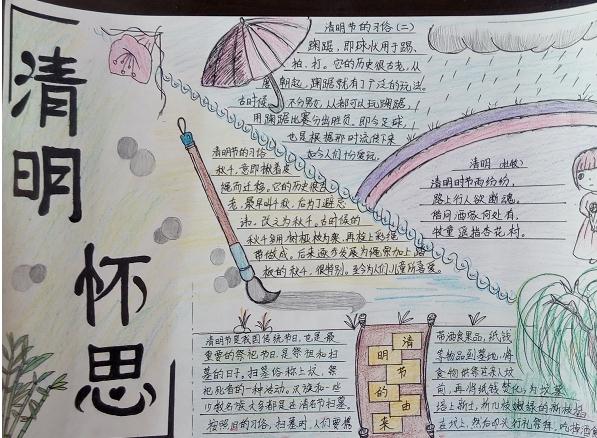 清明
怀思
清明节的习俗(二)
蹴踘,即球状用于踢、
拍、打。它的历史很古老,从
唐朝起,蹴踘就有了广泛的玩法。
古时候 不分男女,人都可以玩蹴踘,
用蹴踘比赛分出胜负,即今足球,
也是根据那时流传下来
如今人们十分爱玩,
清明节的习俗
秋千,意即揪着皮
绳而迁移。它的历史很古
老,最早叫千秋,后为了避忌
讳,改之为秋千。古时候的
秋千多用树桠枝为架,再拴上彩绳
带做成。后来逐步发展为绳索加上踏
板的秋千,很特别。至今为人们儿童所喜爱。
清明 (杜牧)
清明时节雨纷纷,
路上行人欲断魂。
借问酒家何处有,
牧童遥指杏花村。
清明节是我国传统节日,也是最
重要的祭祀节日,是祭祖和扫
墓的日子。扫墓俗称上坟,祭
祀死者的一种活动。汉族和一些
少数民族大多都是在清明节扫墓
按照旧的习俗,扫墓时,人们要携
清
明
节
的
由
来
带酒食果品,纸钱
等物品到墓地,将
食物供祭在亲人坟
前,再将纸钱焚化,为坟墓
培上新土,折几枝嫩绿的新枝插
在坟上,然后叩头行礼祭拜,